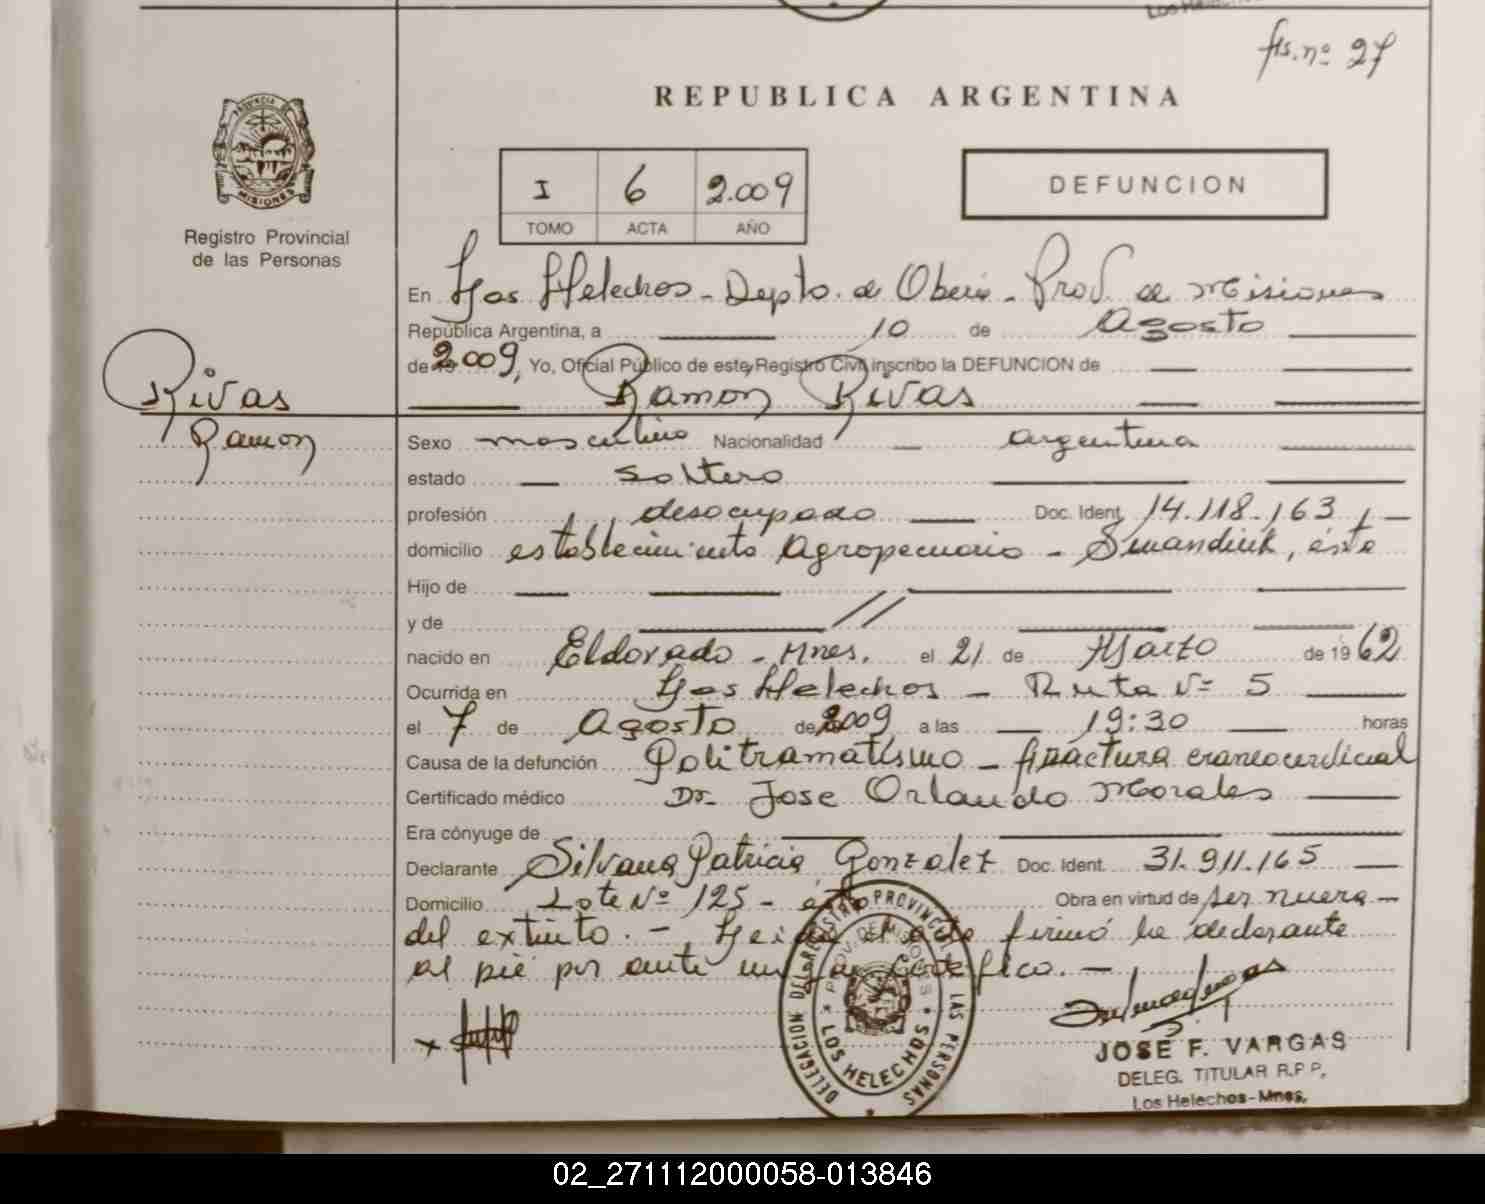 Los Helechos
fls. nº 27
REPUBLICA ARGENTINA
PROVINCIA DE
MISIONES
Registro Provincial
de las Personas
I 6 2.009
TOMO ACTA AÑO
DEFUNCION
En Los Helechos - Depto. de Oberá - Prov. de Misiones
República Argentina, a 10 de Agosto
de 2009, Yo, Oficial Público de este Registro Civil inscribo la DEFUNCION de
Rivas
Ramon Rivas
Ramon
Sexo masculino Nacionalidad argentina
estado soltero
profesión desocupado Doc. Ident. 14.118.163
domicilio establecimiento Agropecuario - , éste
Hijo de
y de //
nacido en Eldorado - Mnes. el 21 de Marzo de 1962
Ocurrida en Los Helechos - Ruta Nº 5
el 7 de Agosto de 2009 a las 19:30 horas
Causa de la defunción Politramatismo - fractura
Certificado médico Dr. Jose Orlando Morales
Era cónyuge de
Declarante Silvana Patricia Gonzalez Doc. Ident. 31.911.165
Domicilio Lote Nº 125 - éste Obra en virtud de ser nuera -
del extinto. - Leída el acta firmó la declarante
al pie por ante mi que certifico. -
DELEGACION DEL REGISTRO PROVINCIAL DE LAS PERSONAS
PROV. DE MISIONES
LOS HELECHOS
JOSE F. VARGAS
DELEG. TITULAR R.P.P,
Los Helechos-Mnes,
02_271112000058-013846